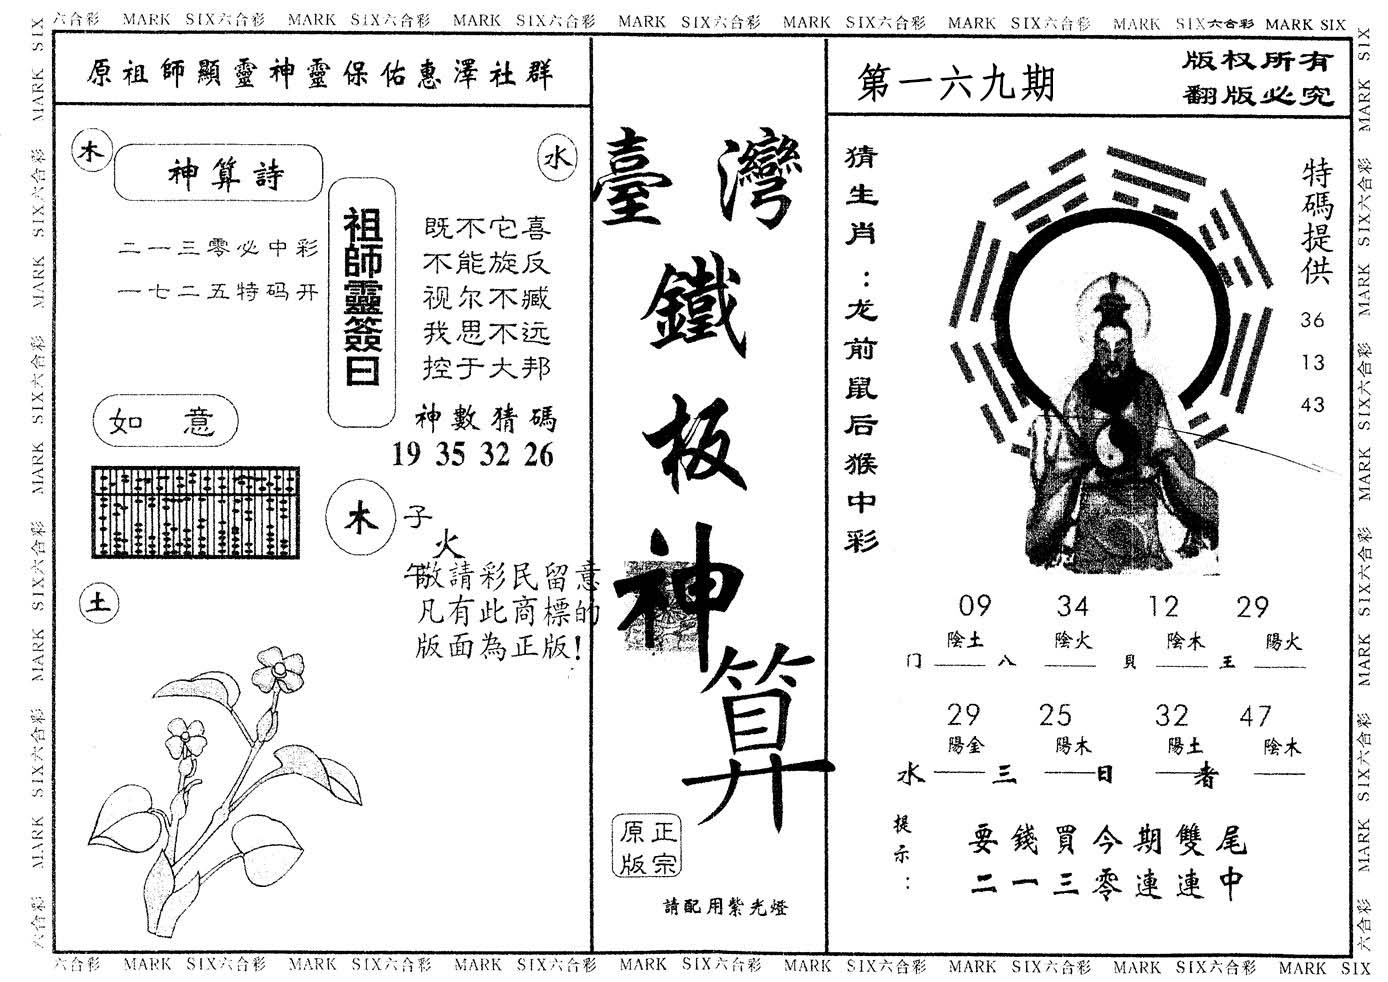 六合彩 MARK SIX六合彩 MARK SIX六合彩 MARK SIX六合彩 MARK SIX六合彩 MARK SIX六合彩 MARK SIX六合彩 MARK SIX六合彩 MARK SIX
原祖師顯靈神靈保佑惠澤社群
木
神算詩
水
二一三零必中彩
一七二五特码开
祖師靈簽曰
既不它喜
不能旋反
视尔不臧
我思不远
控于大邦
神數猜碼
19 35 32 26
如意
木
子
火
午
敬請彩民留意
凡有此商標的
版面為正版!
土
臺灣
鐵
板
神
算
正宗
原版
請配用紫光燈
第一六九期
版权所有
翻版必究
猜生肖:龙前鼠后猴中彩
特碼提供
36
13
43
09 34 12 29
陰土 陰火 陰木 陽火
门 八 貝 王
29 25 32 47
陽金 陽木 陽土 陰木
水 三 日 者
提示:
要錢買今期雙尾
二一三零連連中
六合彩 MARK SIX六合彩 MARK SIX六合彩 MARK SIX六合彩 MARK SIX六合彩 MARK SIX六合彩 MARK SIX六合彩 MARK SIX六合彩 MARK SIX
六合彩 MARK SIX六合彩 MARK SIX六合彩 MARK SIX六合彩 MARK SIX六合彩 MARK SIX
六合彩 MARK SIX六合彩 MARK SIX六合彩 MARK SIX六合彩 MARK SIX六合彩 MARK SIX